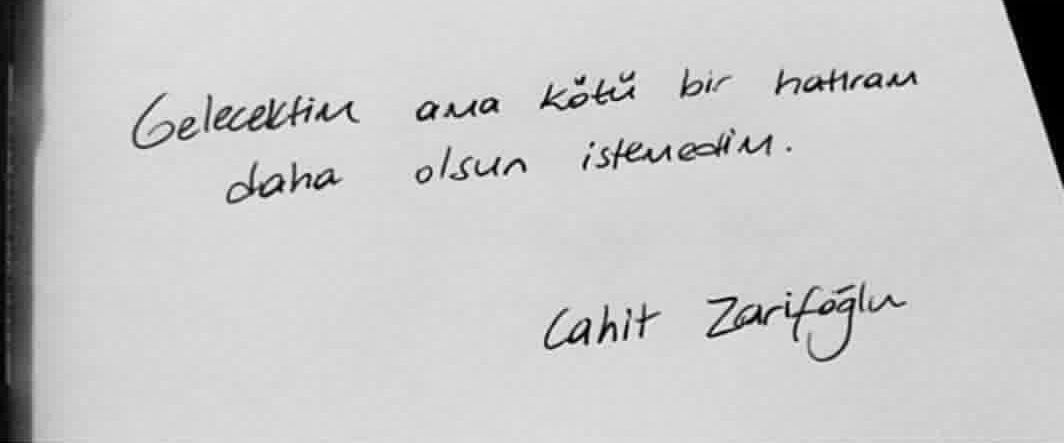 Gelecektim ama kötü bir hatıram
daha olsun istemedim.
Cahit Zarifoğlu